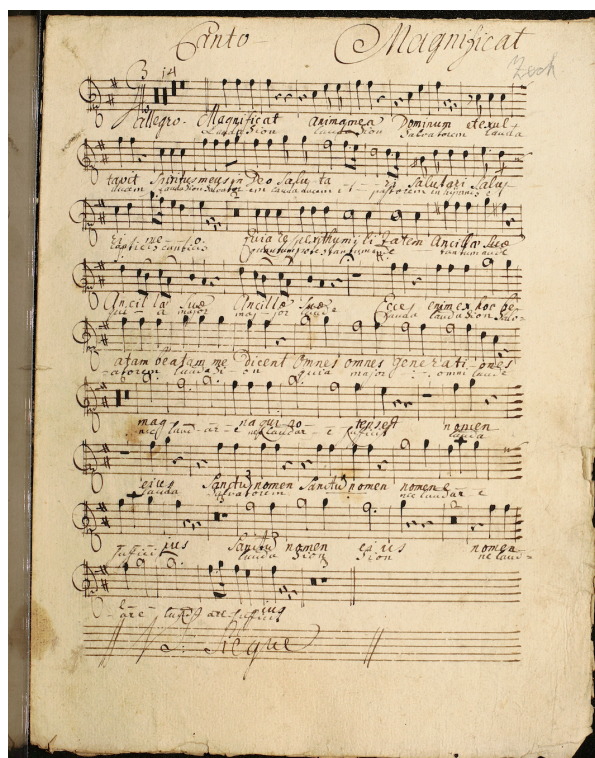 Canto Magnificat
3 14
Allegro. Magnificat anima mea Dominum et exul-
Lauda Sion lauda Sion Salvatorem lauda
tavit Spiritus meus in Deo Salu ta ri Salutari Salu-
ducem lauda Sion Salvatorem lauda ducem et pastorem in hymnis et
ri me o. quia respexit humilitatem Ancillæ Suæ
canticis canticis quantum potes tantum aude
Ancillæ Suæ Ancillæ Suæ Ecce enim ex hoc be-
major major laude Lauda lauda Sion Salv-
atam beatam me dicent Omnes omnes generati-ones
-atorem lauda Si-on quia major omni laude
mag na qui po- tens est nomen
nec laud-ar-e nec laudar-e sufficis lauda
ejus Sanctum nomen Sanctum nomen nomen e
lauda Salvatorem nec laudar e
jus Sanctum nomen ejus nomen
sufficis lauda Sion Sion nec laud-
e- jus
-are sufficis
Seque